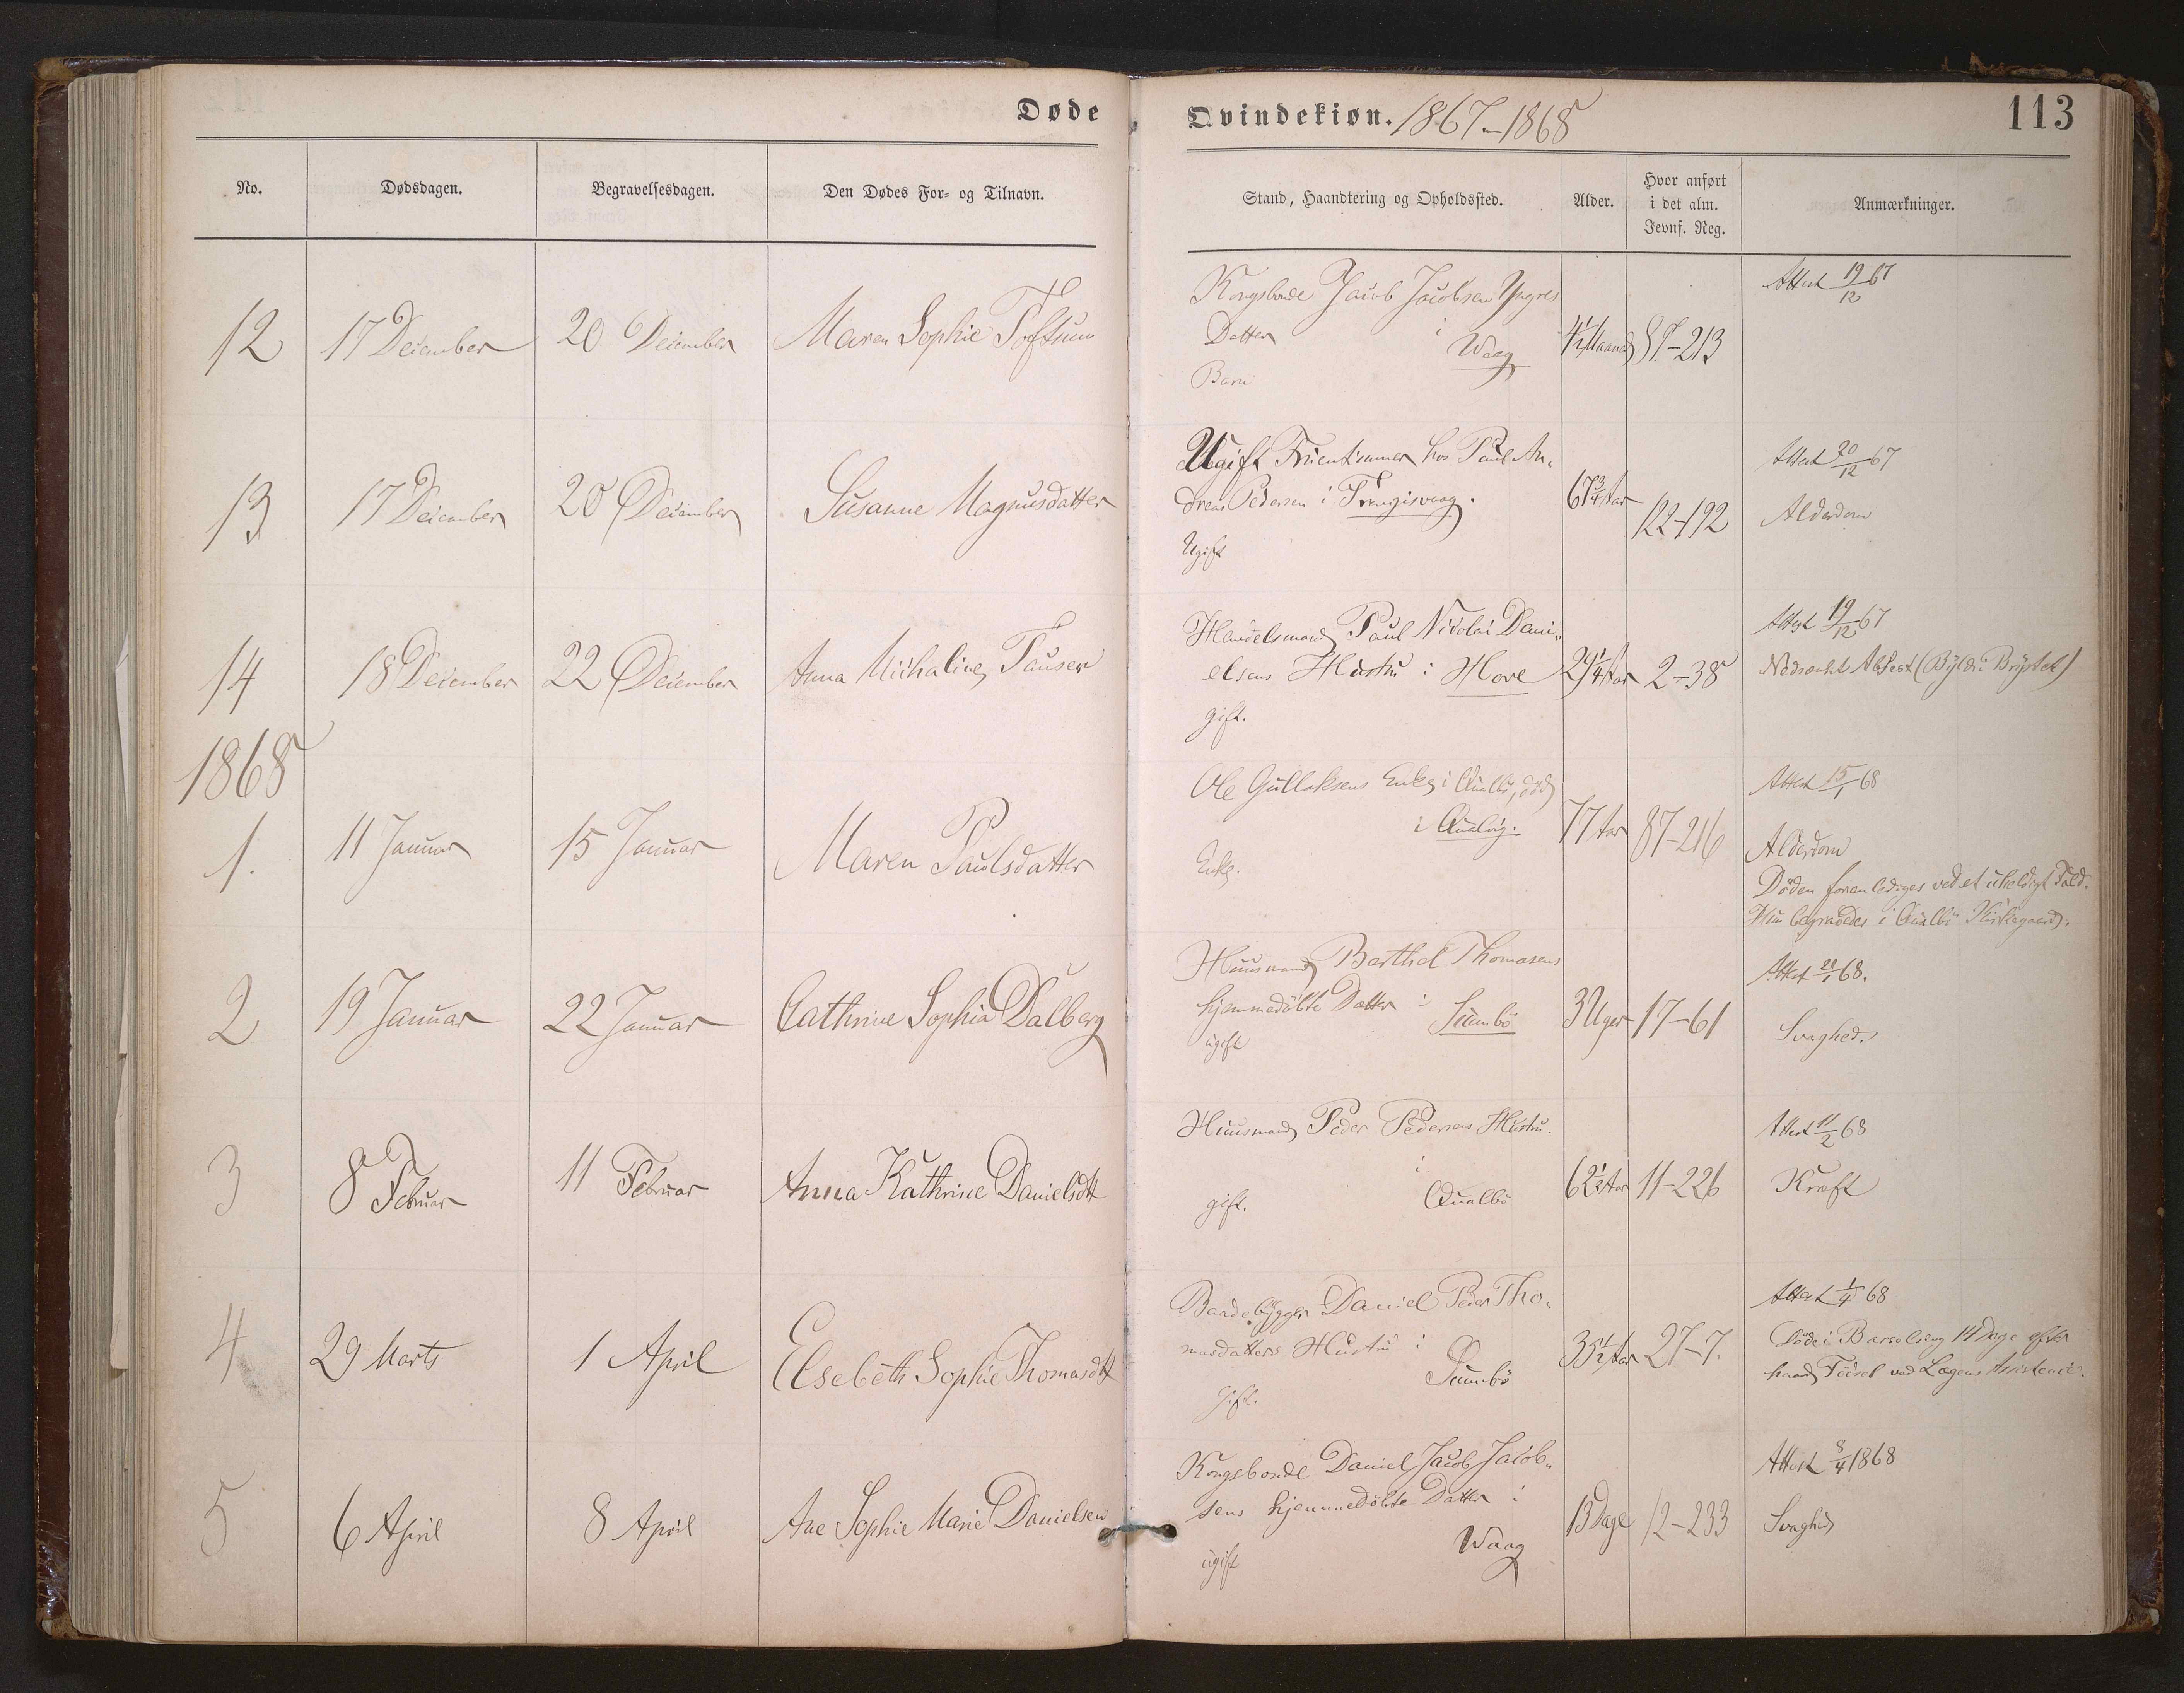 Døde
Qvindekiøn. 1867-1868
113
No.
Dødsdagen.
Begravelsesdagen.
Den Dødes For- og Tilnavn.
Stand, Haandtering og Opholdssted.
Alder.
Hvor anført
i det alm.
Jevnf. Reg.
Anmærkninger.
12
17 December
20 December
Maren Sophie Toftum
Kongsbonde Jacob Jacobsen Yngres
Datter i
Waag
Barn
4½ Maaned
87-213
Attest 19/12 67
13
17 December
20 December
Susanne Magnusdatter
Ugift Fruentimmer hos Paul An-
dreas Pedersen i Trangisvaag.
Ugift
67¾ Aar
122-192
Attest 20/12 67
Alderdom
14
18 December
22 December
Anna Michaline Tausen
Handelsmand Paul Nicolai Dani-
elsens Hustru i Hove
gift.
29¼ Aar
2-38
Attest 19/12 67
Nedsænket Absest (Byld i Brystet)
1868
1.
11 Januar
15 Januar
Maren Paulsdatter
Ole Gullaksens Enke i Qualbö, död
i Qualvig.
Enke.
77 Aar
87-216
Attest 15/1 68
Alderdom
Döden foranlediges ved et uheldigt Fald.
Hun begravedes i Qualbö Kirkegaard.
2
19 Januar
22 Januar
Cathrine Sophia Dalberg
Huusmand Barthel Thomasens
hjemmedöbte Datter i
Sumbö
ugift
3 Uger
17-61
Attest 22/1 68.
Svaghed.
3
8 Februar
11 Februar
Anna Kathrine Danielsdtt
Huusmand Peder Pedersens Hustru
i
gift.
Qualbö
62½ Aar
11-226
Attest 11/2 68
Kræft
4
29 Marts
1 April
Elsebeth Sophie Thomasdtt
Baadebygger Daniel Peder Tho-
masdatters Hustru i
Sumbö
Gift.
35½ Aar
27-7.
Attest 1/4 68
Döde i Barselseng 14 Dage efter
haard Födsel ved Lægens Assistence.
5
6 April
8 April
Ane Sophie Marie Danielsen
Kongsbonde Daniel Jacob Jacob-
sens hjemmedöbte Datter i
Waag
ugift
13 Dage
12-233
Attest 8/4 1868
Svaghed